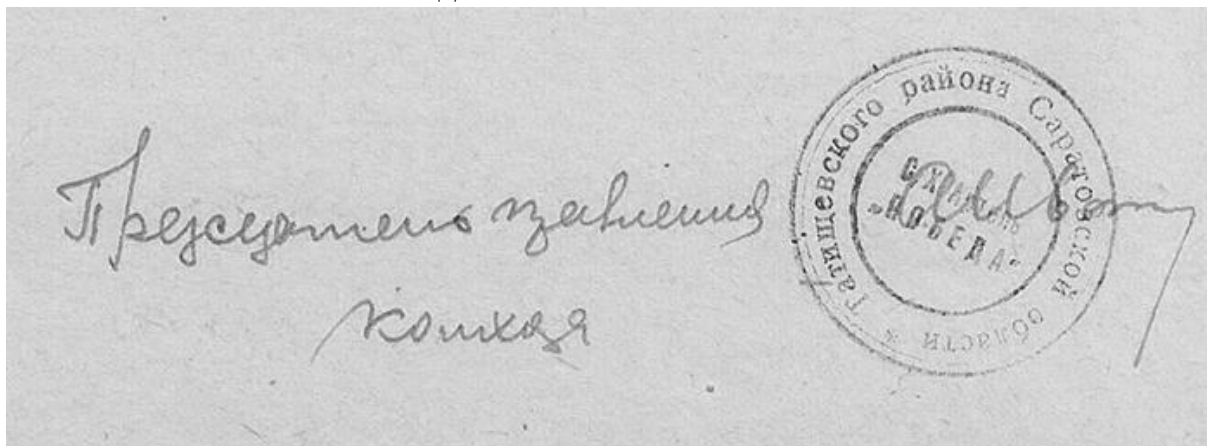 Председатель правления
колхоза
Татищевского района Саратовской области *
С/Х АРТЕЛЬ
"ПОБЕДА"